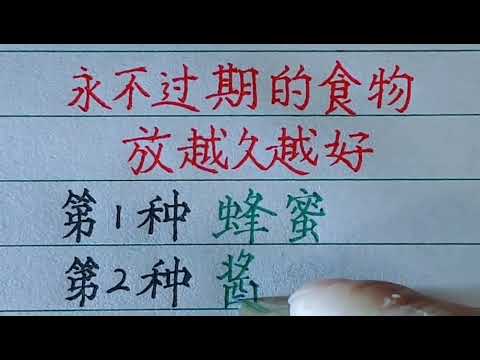 永不过期的食物
放越久越好
第1种 蜂蜜
第2种 酱